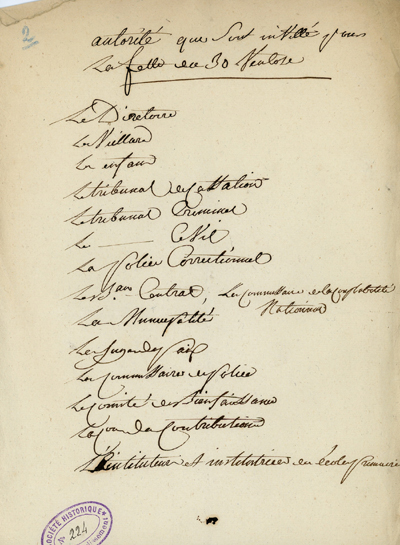 2
autorité que Sont invité pour
La fette du 30 Ventose
Le Directoire
Les Viellard
Les enfans
Le tribunal de Cassation
Le tribunal Criminel
Le ——— Civil
La police Correctionnel
Le B.eau Central, Les Commissaire de la Comptabilité
Nationnal
Les Municipalité
Les Juges de Paix
Les Commissaires de police
Le Comité de Bienfaisance
Le jury des Contributions
L'instituteur et institutrice des écoles primaire
SOCIÉTÉ HISTORIQUE
No 224